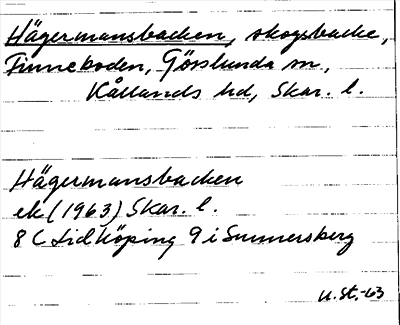 Hägermansbacken, skogsbacke,
Finneboden, Görslunda sn,
Kållands hd, Skar. l.
Hägermansbacken
ek (1963) Skar. l.
8 C Lidköping 9 i Sunnersberg
U.St.-63